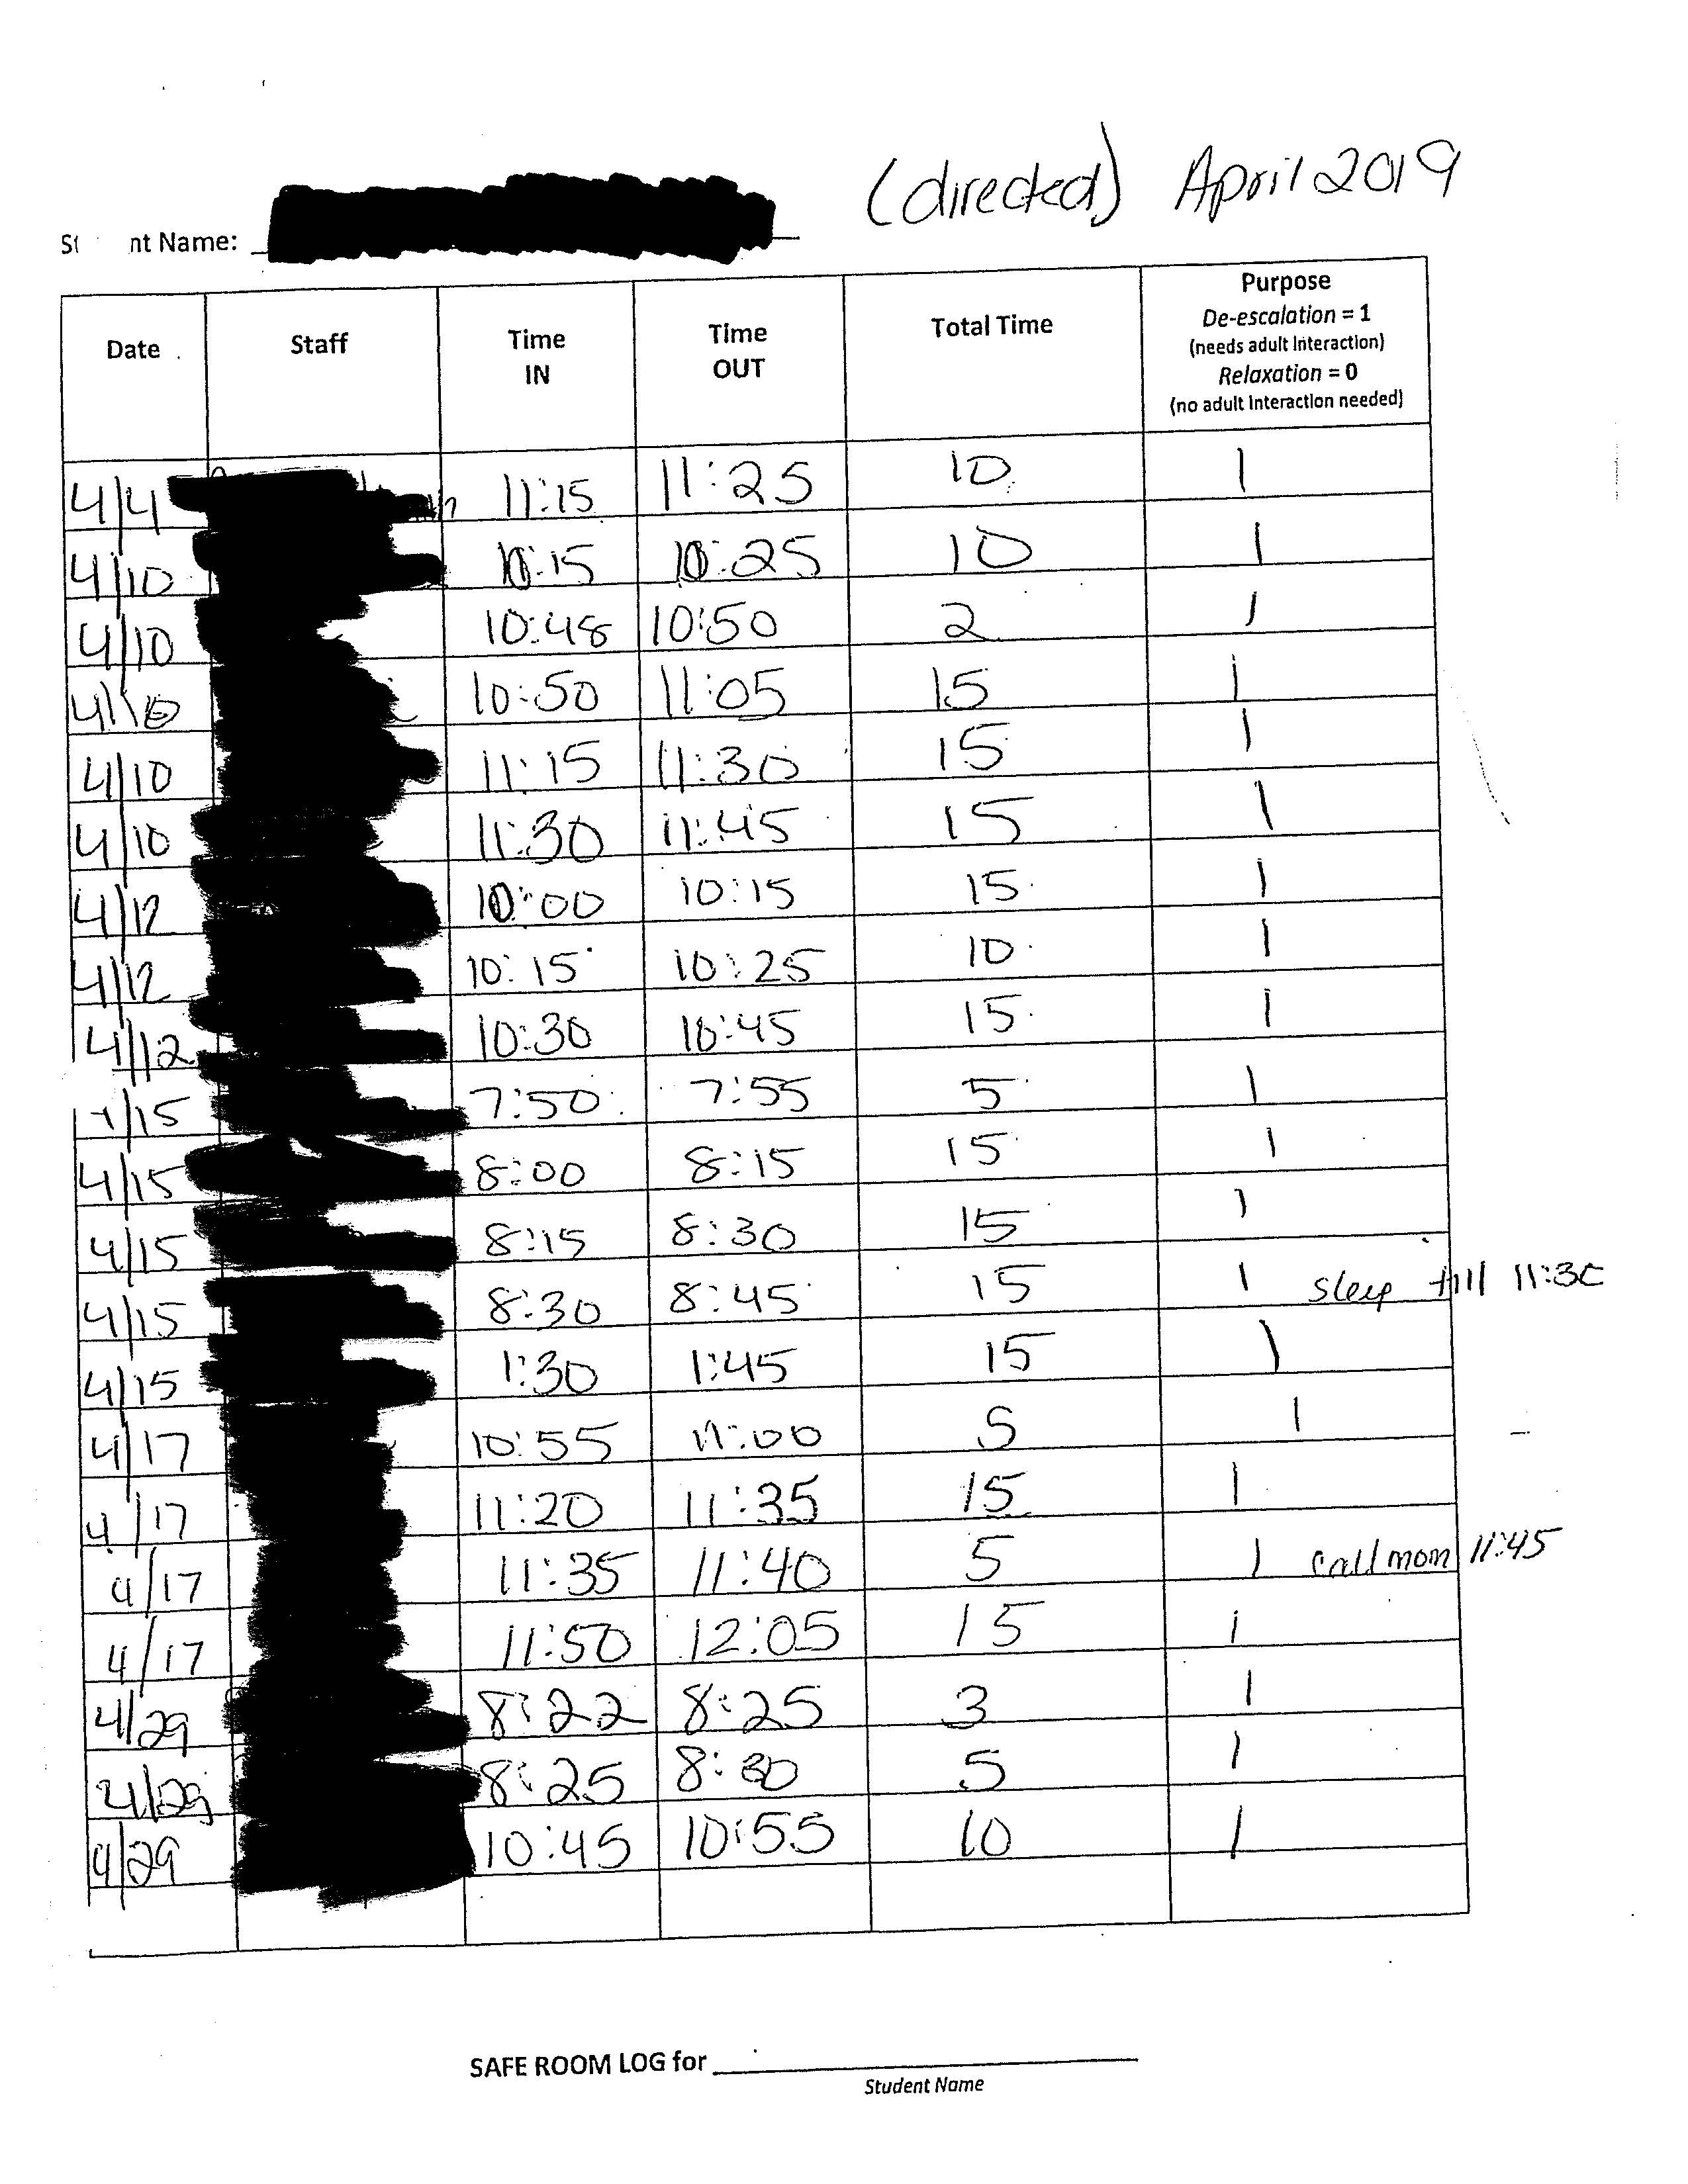 (directed) April 2019
nt Name:
Date Staff Time IN Time OUT Total Time Purpose
De-escalation = 1
(needs adult interaction)
Relaxation = 0
(no adult interaction needed)
4/4 11:15 11:25 10 1
4/10 10:15 10:25 10 1
4/10 10:48 10:50 2 1
4/10 10:50 11:05 15 1
4/10 11:15 11:30 15 1
4/10 11:30 11:45 15 1
4/12 10:00 10:15 15 1
4/12 10:15 10:25 10 1
4/12 10:30 10:45 15 1
4/15 7:50 7:55 5 1
4/15 8:00 8:15 15 1
4/15 8:15 8:30 15 1
4/15 8:30 8:45 15 1 sleep till 11:30
4/15 1:30 1:45 15 1
4/17 10:55 11:00 5 1
4/17 11:20 11:35 15 1
4/17 11:35 11:40 5 1 call mom 11:45
4/17 11:50 12:05 15 1
4/29 8:22 8:25 3 1
4/29 8:25 8:30 5 1
4/29 10:45 10:55 10 1
SAFE ROOM LOG for
Student Name